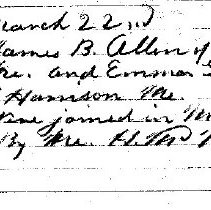 March 22nd
James B. Allen of
Me. and Emma
Harrison Me.
joined in
By Me. H.